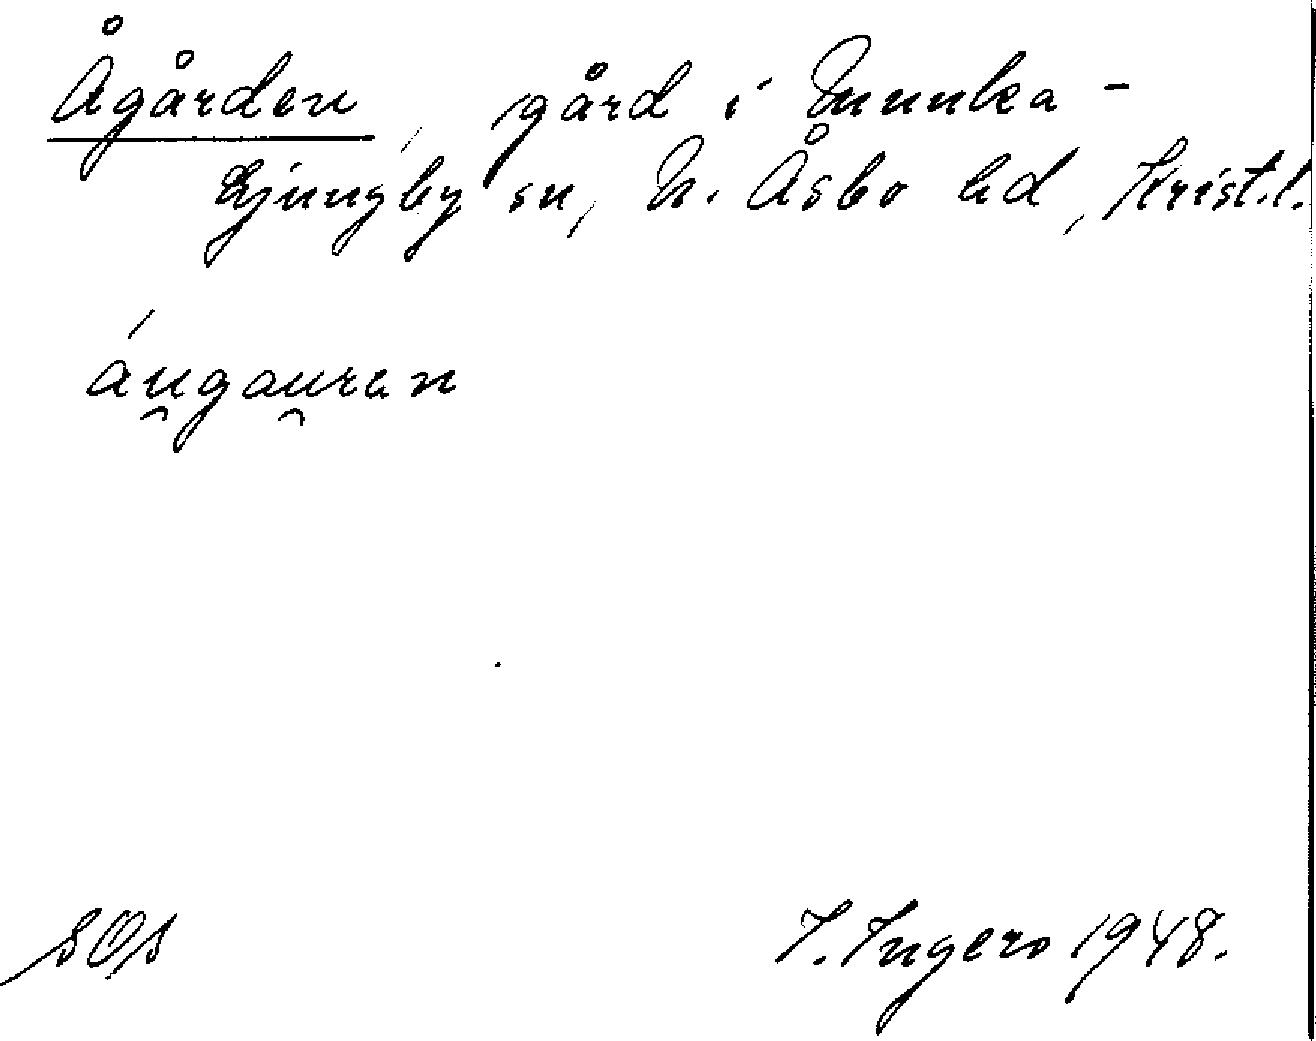 Ågården, gård i Munka-
Ljungby sn, N. Åsbo hd, Krist.l.
áu̯gau̯ran
SOS
I. Ingers 1948.